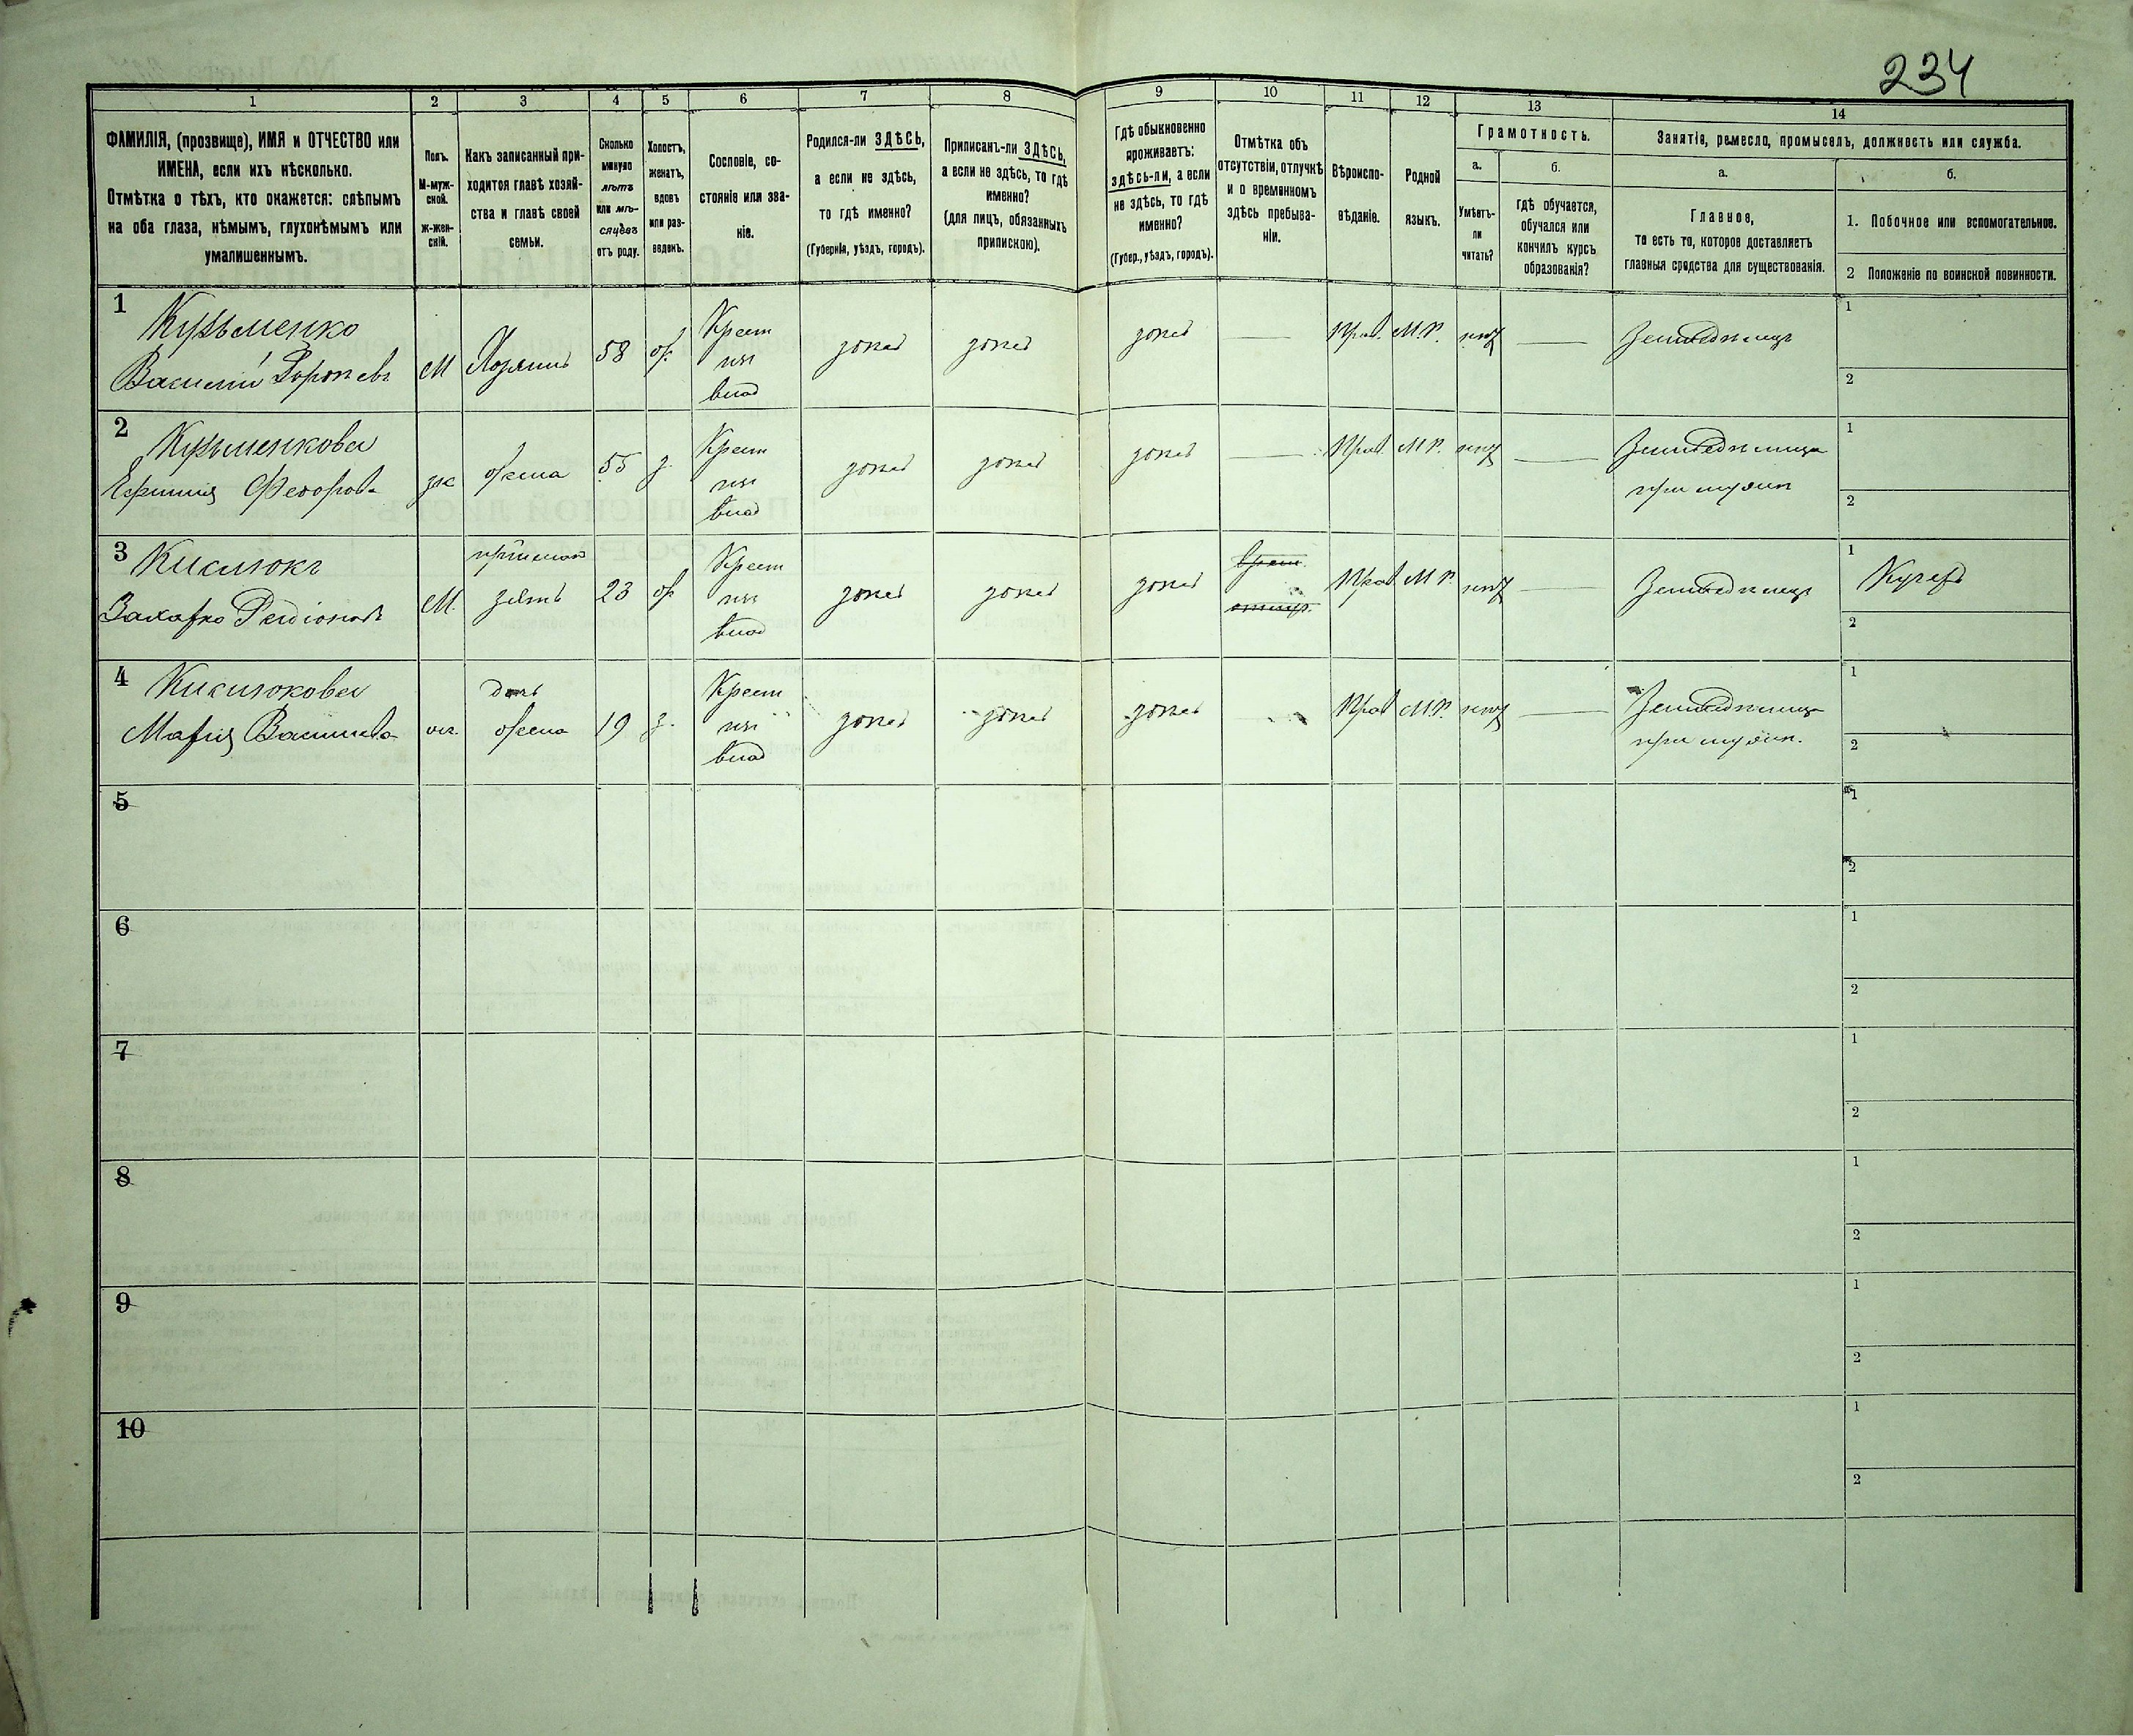 234
1 2 3 4 5 6 7 8 9 10 11 12 13 14
ФАМИЛІЯ, (прозвище), ИМЯ и ОТЧЕСТВО или
ИМЕНА, если ихъ нѣсколько.
Отмѣтка о тѣхъ, кто окажется: слѣпымъ
на оба глаза, нѣмымъ, глухонѣмымъ или
умалишеннымъ.
Полъ.
М-муж-
ской.
Ж-жен-
скій.
Какъ записанный при-
ходится главѣ хозяй-
ства и главѣ своей
семьи.
Сколько
минуло
лѣтъ
или мѣ-
сяцевъ
отъ роду.
Холостъ,
женатъ,
вдовъ
или раз-
веденъ.
Сословіе, со-
стояніе или зва-
ніе.
Родился-ли ЗДѢСЬ,
а если не здѣсь,
то гдѣ именно?
(Губернія, уѣздъ, городъ).
Приписанъ-ли ЗДѢСЬ,
а если не здѣсь, то гдѣ
именно?
(для лицъ, обязанныхъ
припискою).
Гдѣ обыкновенно
проживаетъ:
здѣсь-ли, а если
не здѣсь, то гдѣ
именно?
(Губер., уѣздъ, городъ).
Отмѣтка объ
отсутствіи, отлучкѣ
и о временномъ
здѣсь пребыва-
ніи.
Вѣроиспо-
вѣданіе.
Родной
языкъ.
Грамотность.
а.
Умѣетъ-
ли
читать?
б.
гдѣ обучается,
обучался или
кончилъ курсъ
образованія?
Занятіе, ремесло, промыселъ, должность или служба.
а.
Главное,
то есть то, которое доставляетъ
главныя средства для существованія.
б.
1. Побочное или вспомогательное.
2 Положеніе по воинской повинности.
1
Кузьменко
Василій
М
Хозяинъ
58
ж.
Крест
изъ
влад
здѣсь
здѣсь
здѣсь
—
Прав.
М.Р.
нѣтъ
—
Земледѣлецъ
1
2
2
Кузьменкова
Ефимія Федорова
ж
жена
55
з.
Крест
изъ
влад
здѣсь
здѣсь
здѣсь
—
Прав.
М.Р.
нѣтъ
—
Земледѣлица
при мужѣ
1
2
3
Кисилюкъ
Захарко
М.
зять
23
ж
Крест
изъ
влад
здѣсь
здѣсь
здѣсь
Прав
М.Р.
нѣтъ
—
Земледѣлецъ
1
Кучеръ
2
4
Кисилюкова
Марія Васильева
дочь
жена
19
з.
Крест
изъ
влад
здѣсь
здѣсь
здѣсь
Прав
М.Р.
нѣтъ
—
Земледѣлица
при мужѣ.
1
2
5
1
2
6
1
2
7
1
2
8
1
2
9
1
2
10
1
2